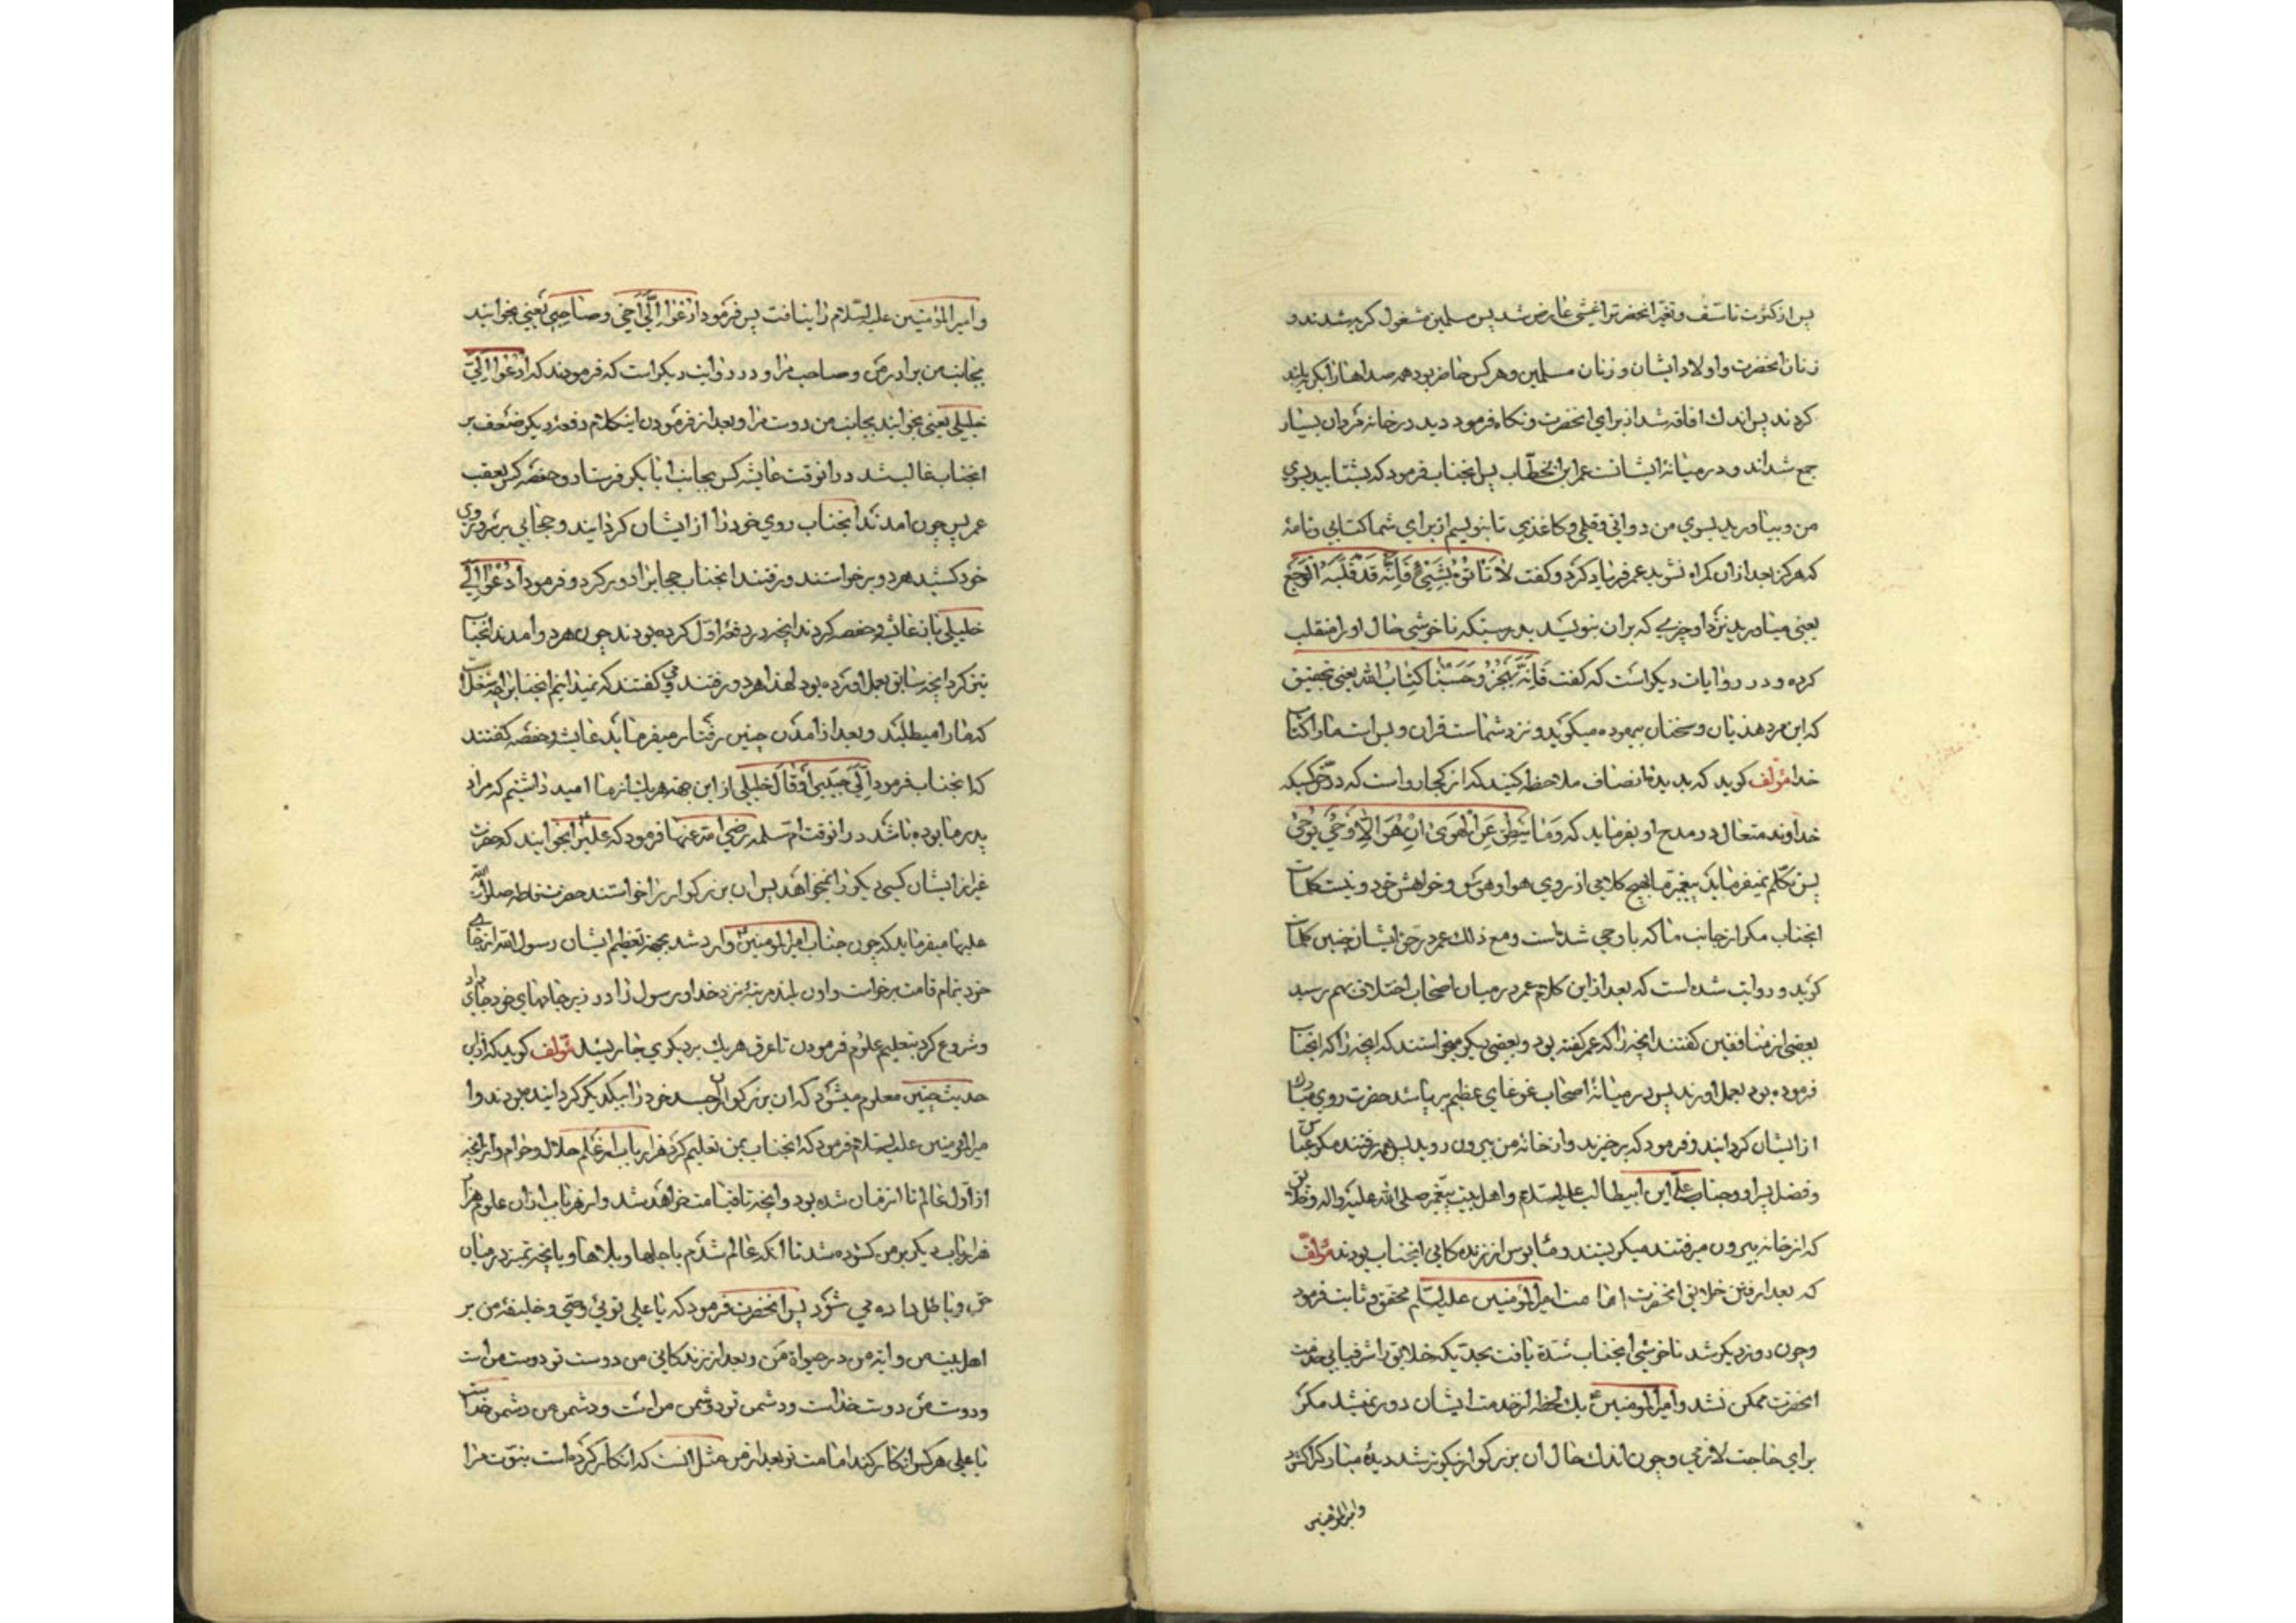 پس از کثرت تاسف و تغیّر انحضرترا غشی عارض شد پس مسلمین مشغول کریه شدند و
زنان انحضرت و اولاد ایشان و زنان مسلمین و هر کس حاضر بود همه صداها را بکریه بلند
کردند پس اندك افاقه شد از برای انحضرت و نکاه فرمود دید در خانه مردان بسیار
جمع شده‌اند و در میانهٔ ایشانست عمر ابن الخطّاب پس انجناب فرمود که بشتابید بسوی
من و بیاورید بسوی من دواتی و قلمی و کاغذی تا بنویسم از برای شما کتابی و نامهٔ
که هرکز بعد از ان کمراه نشوید عمر فریاد کرد و کفت لا تاتوه بشیئ فانّه قد قلبه الوجع
یعنی میاورید نزد او چیزی که بران بنویسد بدرستیکه ناخوشی حال او را منقلب
کرده و در روایات دیکر است که کفت فانّه یهجر و حسبنا کتاب الله یعنی بتحقیق
که این مرد هذیان و سخنان بیهوده میکوید و نزد شماست قران و بس است ما را کتاب
خدا مؤلف کوید که بدیدهٔ انصاف ملاحظه کنید که از کجا رواست که در حق کسیکه
خداوند متعال در مدح او بفرماید که وما ینطق عن الهوی ان هو الا وحی یوحی
پس تکلم نمیفرماید پیغمبر ما بهیچ کلامی از روی هوا و هوس و خواهش خود و نیست کلمات
انجناب مکر از جانب ما که باو وحی شده است و مع ذلك عمر در حق ایشان چنین کلمات
کوید و روایت شده است که بعد از این کلام عمر در میان اصحاب اختلاف بهم رسید
بعضی از منافقین کفتند انچه را که عمر کفته بود و بعضی دیکر میخواستند که انچه را که انجناب
فرموده بود بعمل اورند پس در میانهٔ اصحاب غوغای عظیم بر پا شد حضرت روی مبارك
از ایشان کردانید و فرمود که برخیزید و از خانهٔ من بیرون روید پس همه رفتند مکر عباس
و فضل پسر او و جناب علی ابن ابیطالب علیه السلام و اهل بیت پیغمبر صلی الله علیه و اله
که از خانه بیرون میرفتند میکریستند و مایوس از زنده‌کانی انجناب بودند مؤلف
که بعد از رفتن خلایق انحضرت امامت امیرالمؤمنین علیه السلام محقق و ثابت فرمود
و چون روز دیکر شد ناخوشی انجناب شدّة یافت بحدّیکه خلایق را شرفیابی خدمت
انحضرت ممکن نشد و امیرالمومنین ع یك لحظه از خدمت ایشان دور نمیشد مکر
برای حاجت لازمی و چون اندك حال ان بزرکوار نیکوتر شد دیدهٔ مبارك را کشود
و امیرالمؤمنین
و امیرالمؤمنین علیه السلام را نیافت پس فرمود ادعوا الیّ اخی و صاحبی یعنی بخوانید
بجانب من برادر من و صاحب مرا و در روایت دیکر است که فرمودند که ادعوا الیّ
خلیلی یعنی بخوانید بجانب من دوست مرا و بعد از فرمودن اینکلام دفعهٔ دیکر ضعف بر
انجناب غالب شد در انوقت عایشه کس بجانب ابا بکر فرستاد و حفصه کس بعقب
عمر پس چون امدند انجناب روی خود را از ایشان کردانید و حجابی بر سر و روی
خود کشید هر دو برخواستند و رفتند انجناب حجاب را دور کرد و فرمود ادعوا الیّ
خلیلی باز عایشه و حفصه کردند انچه در دفعهٔ اوّل کرده بودند چون هر دو امدند انجناب
نیز کرد انچه سابق بعمل اورده بود لهذا هر دو رفتند و کفتند که نمیدانیم انجناب را چه شغل است
که ما را میطلبند و بعد از امدن چنین رفتار میفرماید عایشه و حفصه کفتند
که انجناب فرمود الیّ حبیبی او قال خلیلی از این جهة هر یك از ما امید داشتیم که مراد
پدر ما بوده باشد در انوقت ام سلمه رضی الله عنها فرمود که علی را بخوانید که حضرت
غیر از ایشان کسی دیکر را نمیخواهد پس ان بزرکوار را خواستند حضرت فاطمه صلوات الله
علیها میفرماید که چون جناب امیرالمومنین ع وارد شد بجهة تعظیم ایشان رسول الله از جای
خود تمام قامت برخواست و اون بلند مرتبهٔ نزد خدا و رسول را در زیر جامهای خود جای داد
و شروع کرد بتعلیم علوم فرمودن تا عرق هر یك بر دیکری جاری شد مؤلف کوید که از این
حدیث چنین معلوم میشود که ان بزرکواران جسد خود را بیکدیکر کردانیده بودند و ا
میرالمؤمنین علیه السلام فرمود که انجناب بمن تعلیم کرد هزار باب از علم حلال و حرام و از انچه
از اوّل عالم تا انزمان شده بود و انچه تا قیامت خواهد شد و از هر باب از ان علوم هزار
هزار باب دیکر بر من کشوده شد تا انکه عالم شدم باجلها و بلاها و بانچه تمیز در میان
حق و باطل داده می شود پس انحضرت فرمود که یا علی توئی وصی و خلیفهٔ من بر
اهل بیت من و امّه من در حیوة من و بعد از زنده‌کانی من دوست تو دوست من است
و دوست من دوست خداست و دشمن تو دشمن من است و دشمن من دشمن خداست
یا علی هر کس انکار کند امامت تو بعد از من مثل انست که انکار کرده است نبوّت مرا